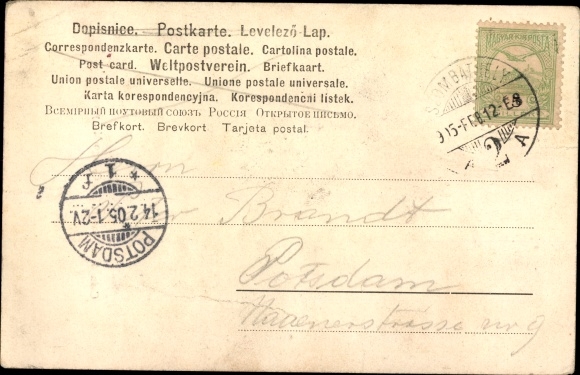 Dopisnice. — Postkarte. — Levelező-Lap.
Correspondenzkarte. Carte postale. Cartolina postale.
Post card. Weltpostverein. Briefkaart.
Union postale universelle. Unione postale universale.
Karta korespondencyjna. Korespondenčni listek.
Всемірный почтовый союзъ Россія Открытое письмо.
Brefkort. Brevkort. Tarjeta postal.
MAGYAR KIR. POSTA
905-FEB.12-E8
A
Herrn
Brandt
Potsdam
POTSDAM
14.2.05.1-2V.
* 1 f